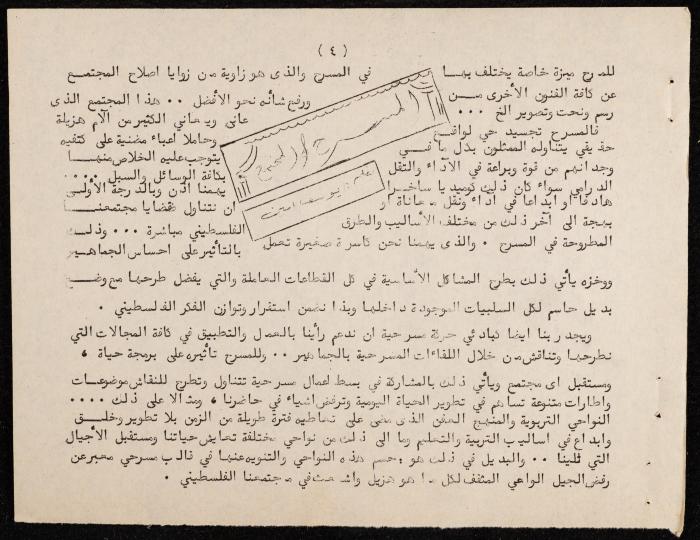 (٤)
المسرح والمجتمع
بقلم: يوسف امين
للمسرح ميزة خاصة يختلف بها
عن كافة الفنون الأخرى من
رسم ونحت وتصوير الخ ...
فالمسرح تجسيد حي لواقع
حقيقي يتناوله الممثلون بكل ما في
وجدانهم من قوة وبراعة في الآداء والنقل
الدرامي سواء كان ذلك كوميديا ساخرا
هادفا او ابداعا في اداء ونقل معاناة او
بهجة الى آخر ذلك من مختلف الأساليب والطرق
المطروحة في المسرح . والذى يهمنا نحن كأسرة صغيرة تعمل
في المسرح والذى هو زاوية من زوايا اصلاح المجتمع
ورفع شأنه نحو الأفضل .. هذا المجتمع الذى
عانى ويعاني الكثير من آلام هزيلة
وحاملا اعباء مضنية على كتفيه
يتوجب عليه الخلاص منها
بكافة الوسائل والسبل ....
يهمنا اذن وبالدرجة الأولى
ان نتناول قضايا مجتمعنا
الفلسطيني مباشرة ... وذلك
بالتأثير على احساس الجماهير
ووخزه يأتي ذلك بطرح المشاكل الأساسية في كل القطاعات العاملة والتي يفضل طرحها مع وضع
بديل حاسم لكل السلبيات الموجودة داخلها وبذا نضمن استقرار وتوازن الفكر الفلسطيني .
ويجدر بنا ايضا كبادئي حركة مسرحية ان ندعم رأينا بالعمال والتطبيق في كافة المجالات التي
نطرحها وتناقش من خلال اللقاءات المسرحية بالجماهير .. وللمسرح تأثيره على برمجة حياة ،
ومستقبل اى مجتمع ويأتي ذلك بالمشاركة في بسط اعمال مسرحية تتناول وتطرح للنقاش موضوعات
واطارات متنوعة تساهم في تطوير الحياة اليومية وترفض اشياء في حاضرنا ، ومثالا على ذلك ....
النواحي التربوية والمنهج العفن الذى مضى على تعاطيه فترة طويلة من الزمن بلا تطوير وخلق
وابداع في اساليب التربية والتعليم وما الى ذلك من نواحي مختلفة تعايش حياتنا ومستقبل الأجيال
التي تلينا .. والبديل في ذلك هو ; حسم هذه النواحي والتنويه عنها في قالب مسرحي معبر عن
رفض الجيل الواعي المثقف لكل ما هو هزيل واشعث في مجتمعنا الفلسطيني .